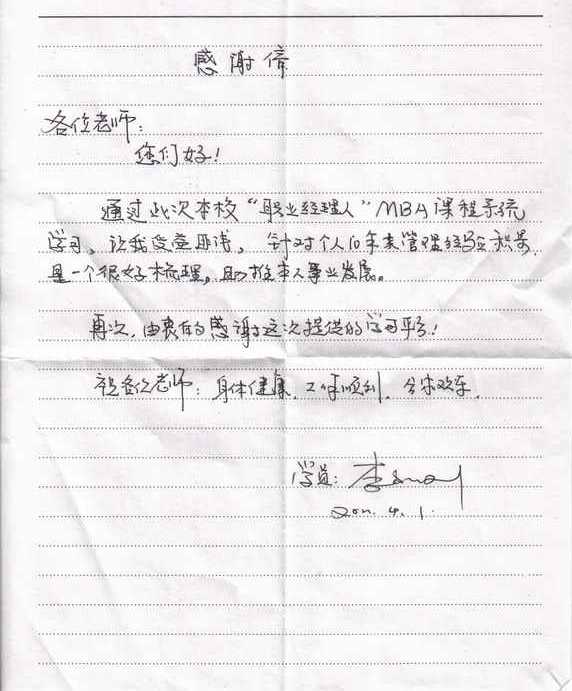 感谢信
各位老师：
您们好！
通过此次本校“职业经理人”MBA课程系统
学习，让我受益匪浅，针对个人10年来管理经验积累
是一个很好梳理，助推本人事业发展。
再次，由衷的感谢这次提供的学习平台！
祝各位老师：身体健康、工作顺利、合家欢乐。
学员：李
2011.4.1